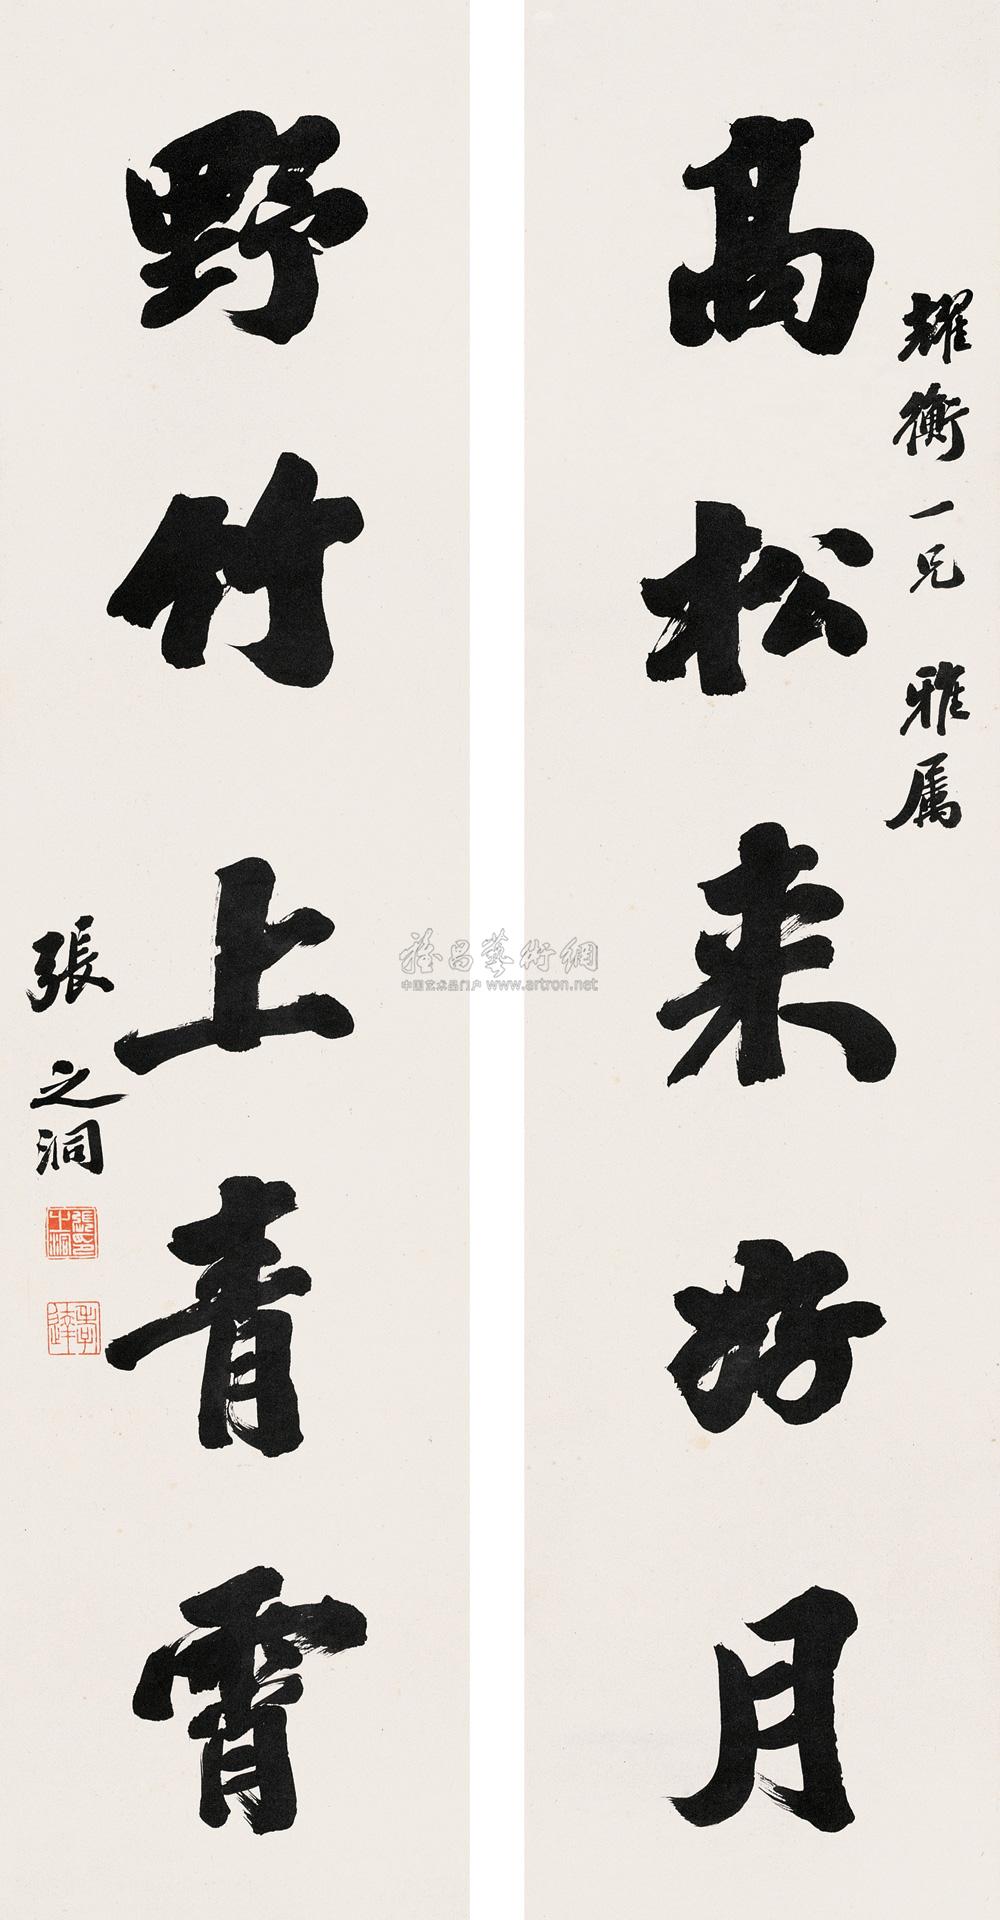 耀衡一兄 雅属
高松来好月
野竹上青霄
張之洞
張之洞印
孝達
雅昌藝術網
中国艺术品门户 www.artron.net